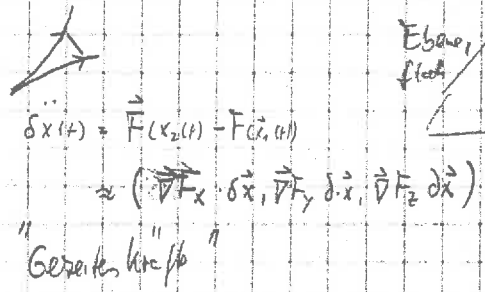 Ebene,
flach
δẍ(t) = F⃗(x₂(t)) - F(x⃗₁(t))
≈ (∇⃗F_x · δx⃗, ∇⃗F_y δ·x⃗, ∇⃗F_z ∂x⃗)
"Gezeitenkräfte"